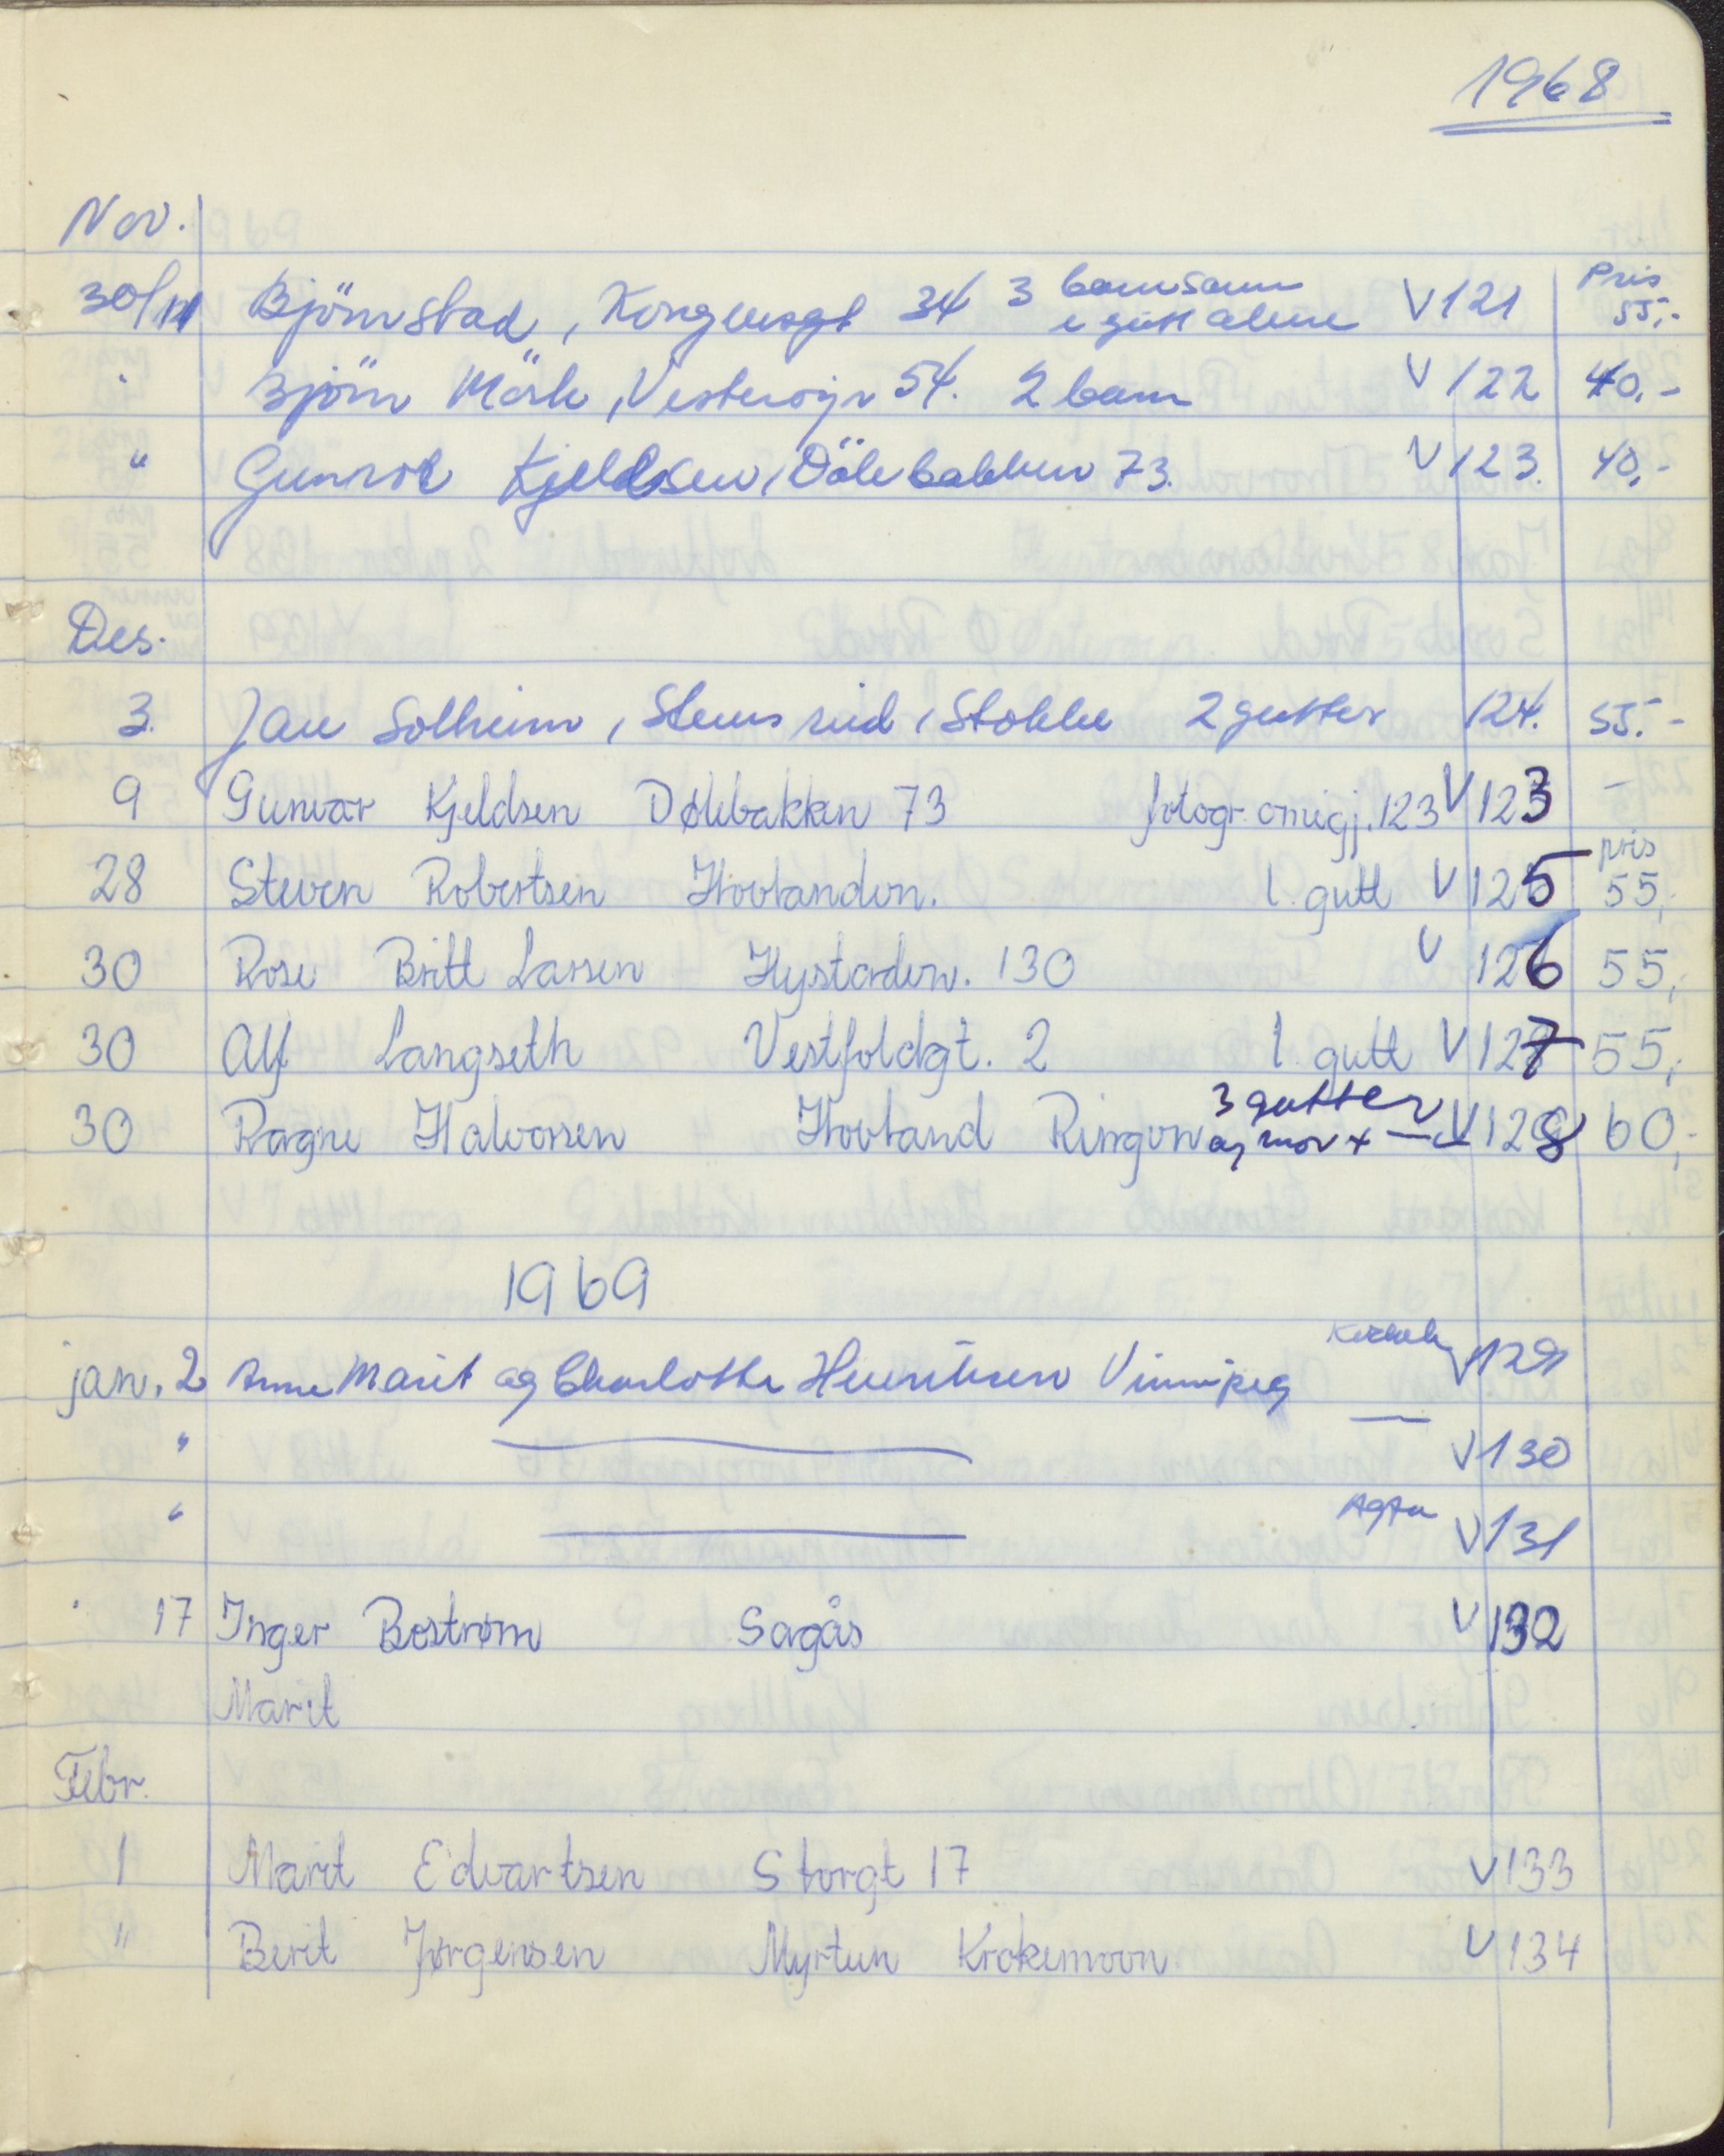 1968
Nov.
30/11 Björnstad, Kongensgt 34 3 barn sam Pris
1 gutt alene V 121 55,-
" Björn Mörk, Vesterøyv 54. 2 barn V 122 40,-
" Gunvor Kjeldsen, Dölebakken 73. V 123. 40,-
Des.
3. Jan Solheim, Stensrud, Stokke 2 gutter 124. 55.-
9 Gunvor Kjeldsen Dølebakken 73 fotogr. omigj. 123 V 123 -
28 Steven Robertsen Hovlandvn. 1. gutt V 125 pris 55,-
30 Rose Britt Larsen Hystadvn. 130 V 126 55,-
30 Alf Langseth Vestfoldgt. 2 1. gutt V 127 55,-
30 Ragne Halvorsen Hovland Ringvn 3 gutter
og mor + — " — V 128 60,-
1969
jan. 2 Anne Marit og Charlotte Henriksen Vinnipeg V 129
" — — V 130
" — Agfa V 131
" 17 Inger Bostrøm Sagås V 132
Marit
Febr.
1 Marit Edvartsen Storgt 17 V 133
" Berit Jørgensen Myrtun Krokemovn. V 134